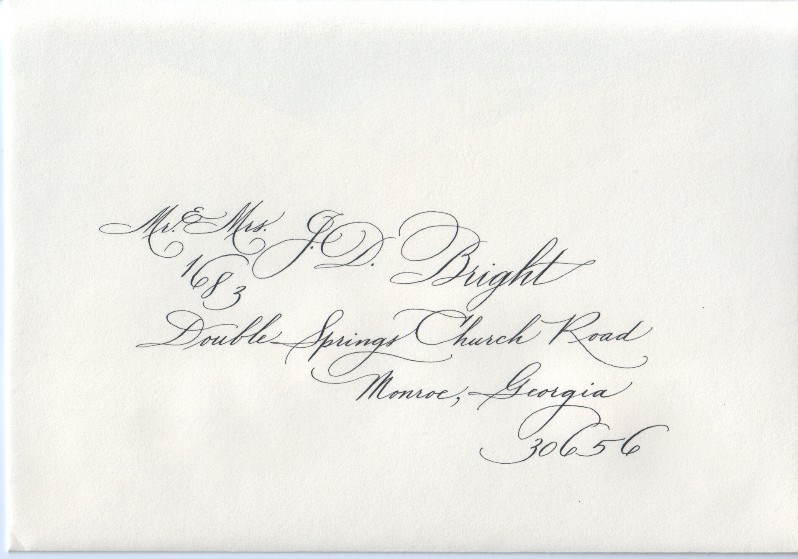 Mr. & Mrs. J. D. Bright
1683
Double Springs Church Road
Monroe, Georgia
30656